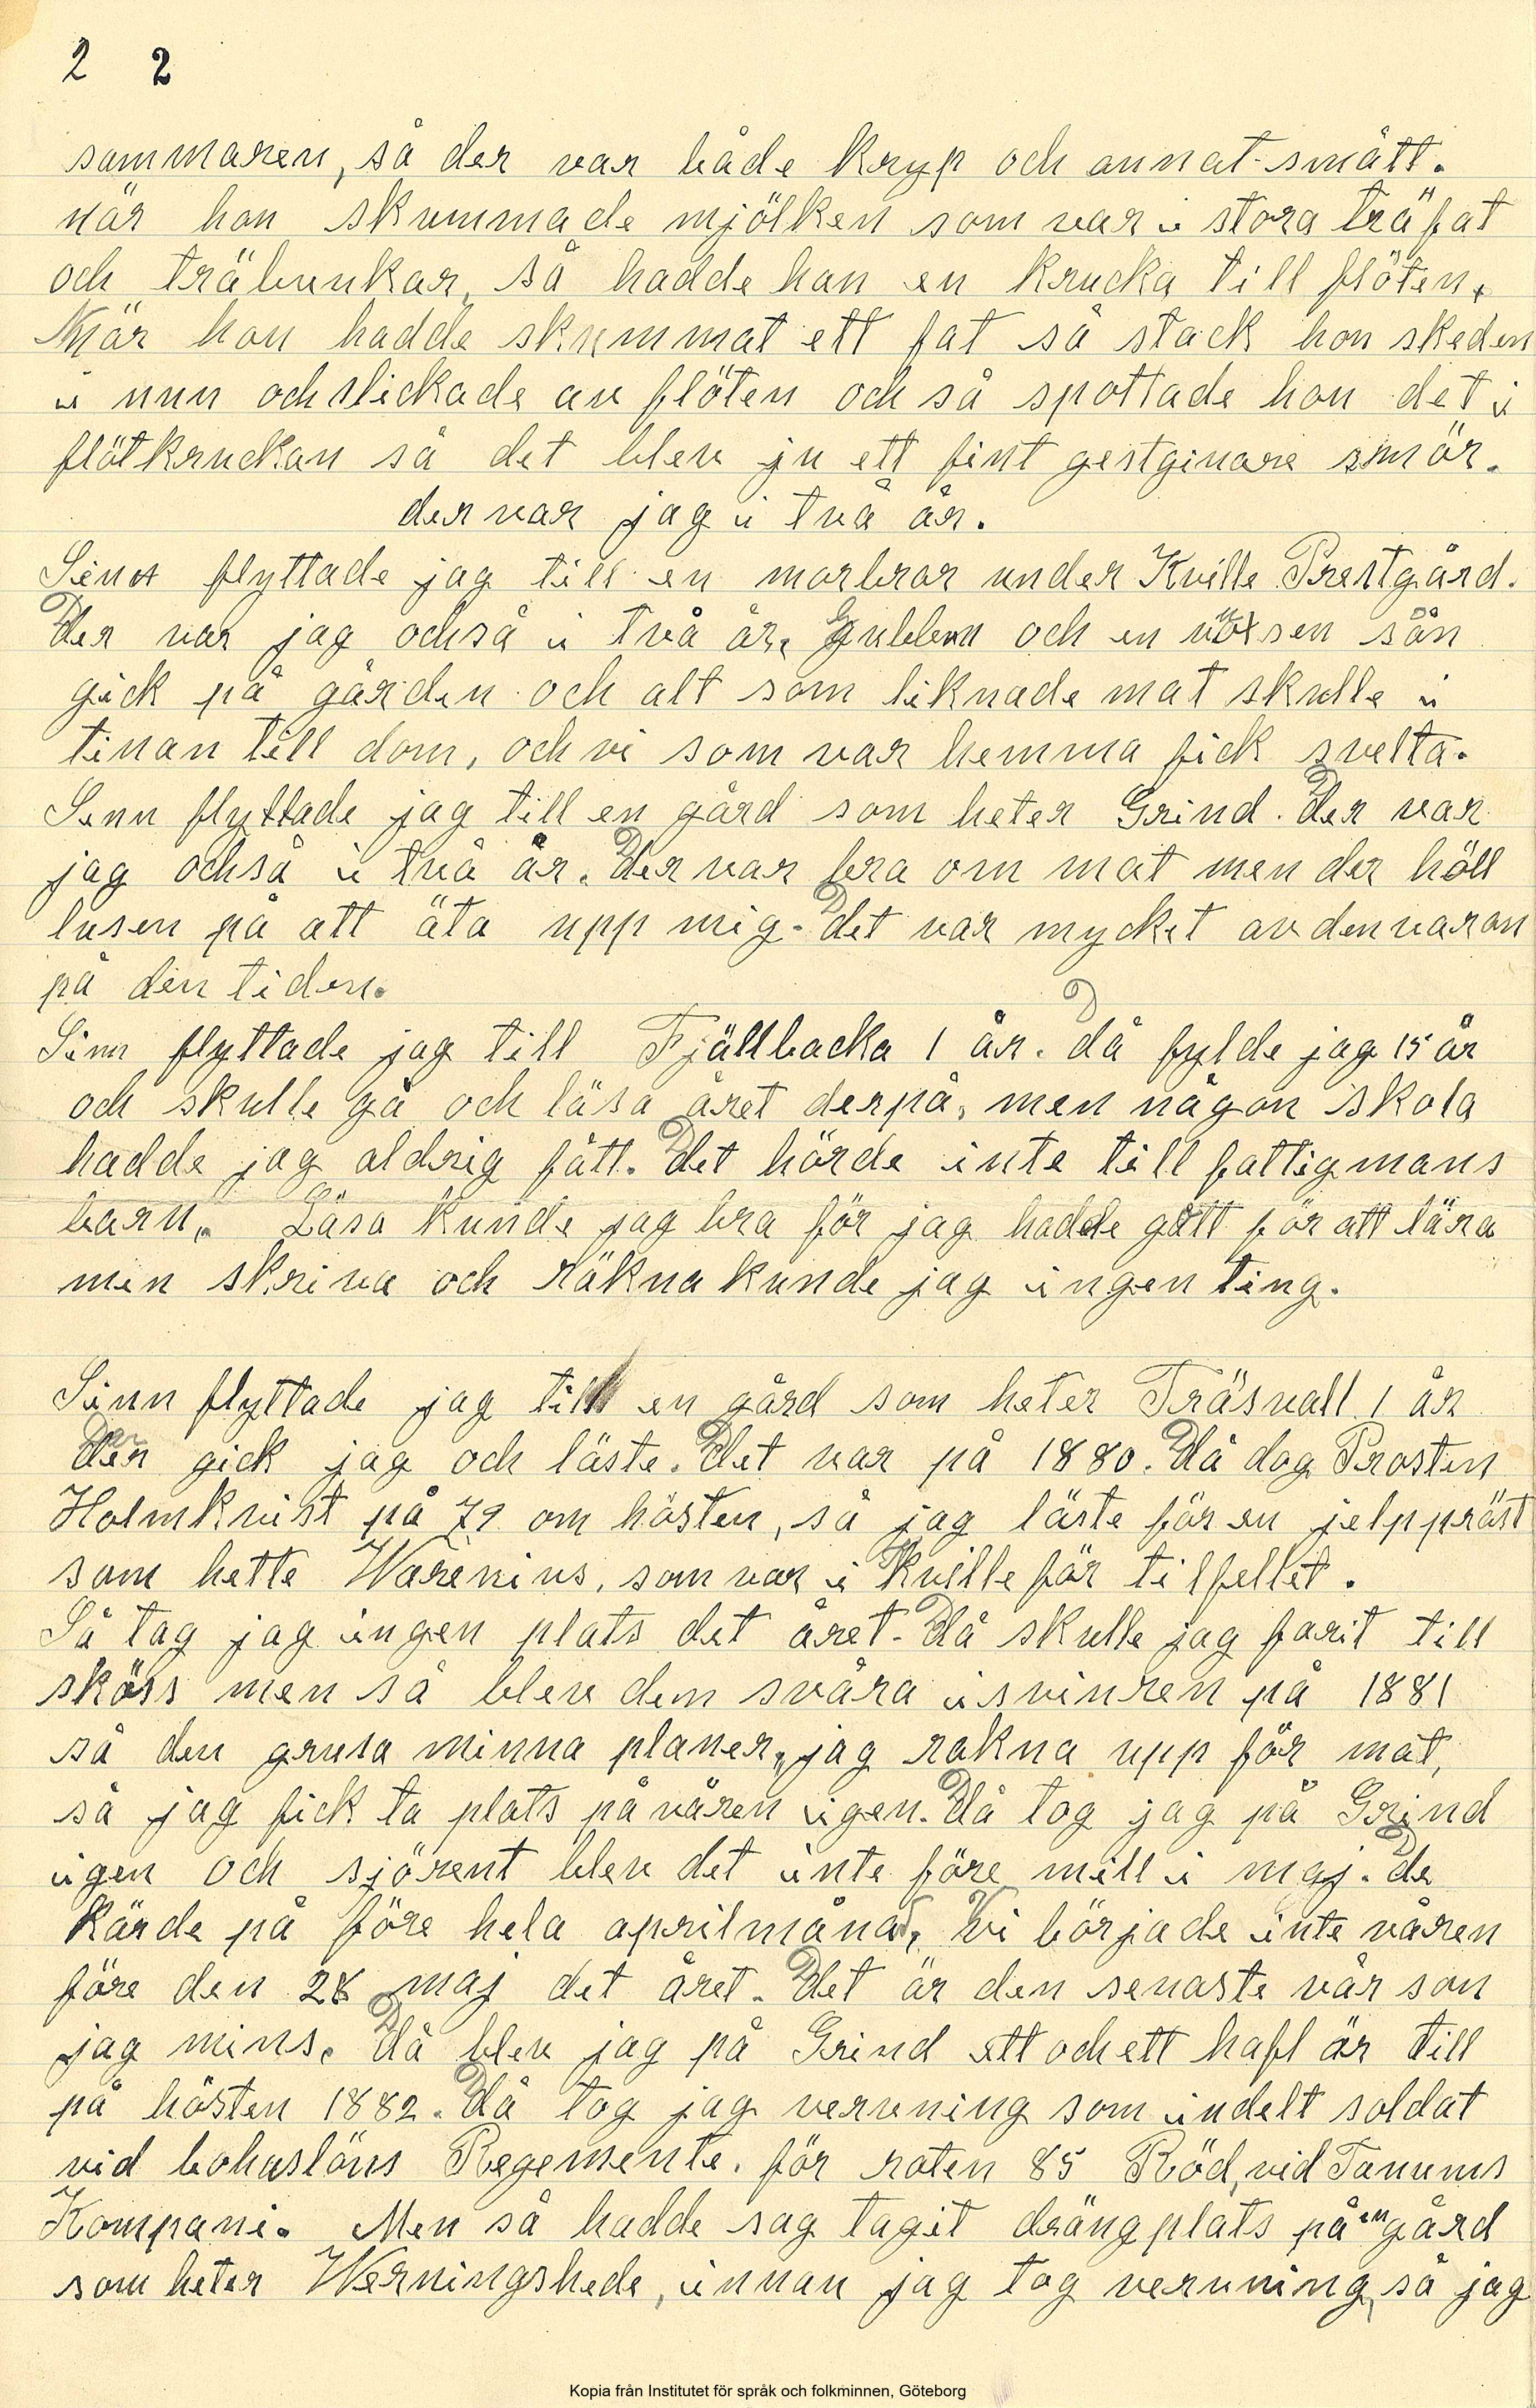 2 2
sommaren, så der var både kryp och annat smått.
när hon skummade mjölken som var i stora träfat
och träbunkar, så hadde hon en krucka till flöten.
När hon hadde skummat ett fat så stack hon skeden
i mun och slickade av flöten och så spottade hon det i
flötkruckan så det blev ju ett fint gestgivare smör.
der var jag i två år.
flyttade jag till en morbror under Kville Prestgård.
Der var jag också i två år. Gubben och en vuxsen sån
gick på gården och alt som liknade mat skulle i
tinan till dom, och vi som var hemma fick svelta.
Senn flyttade jag till en gård som heter Grind. Der var
jag också i två år. Der var bra om mat men der höll
lusen på att äta upp mig. Det var mycket av den varan
på den tiden.
Sinn flyttade jag till Fjällbacka 1 år. Då fylde jag 15 år
och skulle gå och läsa året derpå, men någon skola
hadde jag aldrig fått. Det hörde inte till fattigmans
barn. Läsa kunde jag bra för jag hadde gått för att lära
men skriva och räkna kunde jag ingen ting.
Sinn flyttade jag till en gård som heter Träsvall 1 år
Der gick jag och läste. Det var på 1880. Då dog Prosten
Holmkvist på 79 om hösten, så jag läste för en jelppräst
som hette Warenius, som var i Kville för tilfellet.
Så tag jag ingen plats det året. Då skulle jag farit till
sköss men så blev den svåra isvinren på 1881
så den grusa minna planer, jag rakna upp för mat,
så jag fick ta plats på våren igen. Då tog jag på Grind
igen och sjörent blev det inte före mitt i maj. De
kärde på före hela aprilmånad, Vi började inte våren
före den 28 maj det året. Det är den senaste vår son
jag mins. Då blev jag på Grind ett och ett hafl år till
på hösten 1882. Då tog jag vervning som indelt soldat
vid bohusläns Regemente. för roten 85 Röd, vid Tanums
Kompani. Men så hadde jag tagit drängplats på en gård
som heter Werningshede, innan jag tog vervning, så jag
Kopia från Institutet för språk och folkminnen, Göteborg